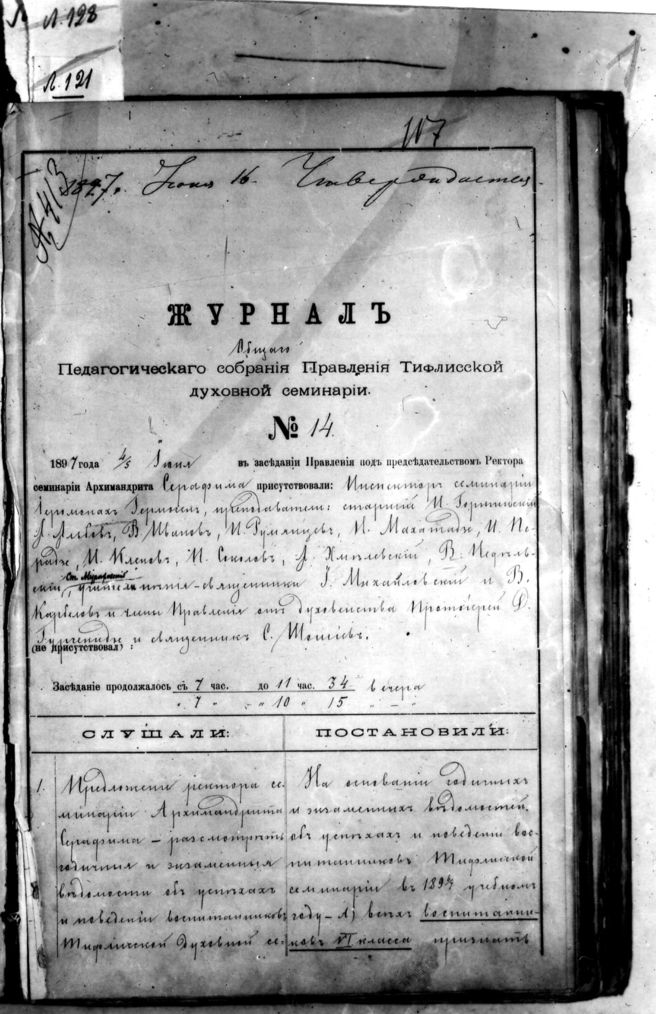 Л. 128
Л. 121
117
№ 413
1897 г. Июня 16. Утверждается.
ЖУРНАЛЪ
Общаго
Педагогическаго собранія Правленія Тифлисской
духовной семинаріи.
№ 14.
1897 года 4/5 Іюня въ засѣданіи Правленія подъ предсѣдательствомъ Ректора
семинаріи Архимандрита Серафима присутствовали: Инспекторъ семинаріи
Іеромонахъ Гермогенъ, преподаватели: старшій И.
Альбовъ, В. Ивановъ, И. Румянцевъ, И. Махатадзе, И. Пе-
радзе, И. Клеповъ, И. Соколовъ, А. Хмѣлевскій, В. Недѣль-
скій, учители пѣнія – священники І. Михайловскій и В.
Карбеловъ и члены Правленія отъ духовенства Протоіерей Д.
и священникъ С.
(не присутствовал) :
Засѣданіе продолжалось съ 7 час. до 11 час. 34 вечера
" 7 " " 10 " 15 " – "
СЛУШАЛИ:
1. Предложеніе ректора се-
минаріи Архимандрита
Серафима – разсмотрѣть
годичныя и экзаменныя
вѣдомости объ успѣхахъ
и поведеніи воспитанниковъ
Тифлисской Духовной се-
ПОСТАНОВИЛИ:
На основаніи годичныхъ
и экзаменныхъ вѣдомостей
объ успѣхахъ и поведеніи вос-
питанниковъ Тифлисской
семинаріи въ 189 6/7 учебномъ
году – А) всѣхъ воспитанни-
ковъ VI класса признать